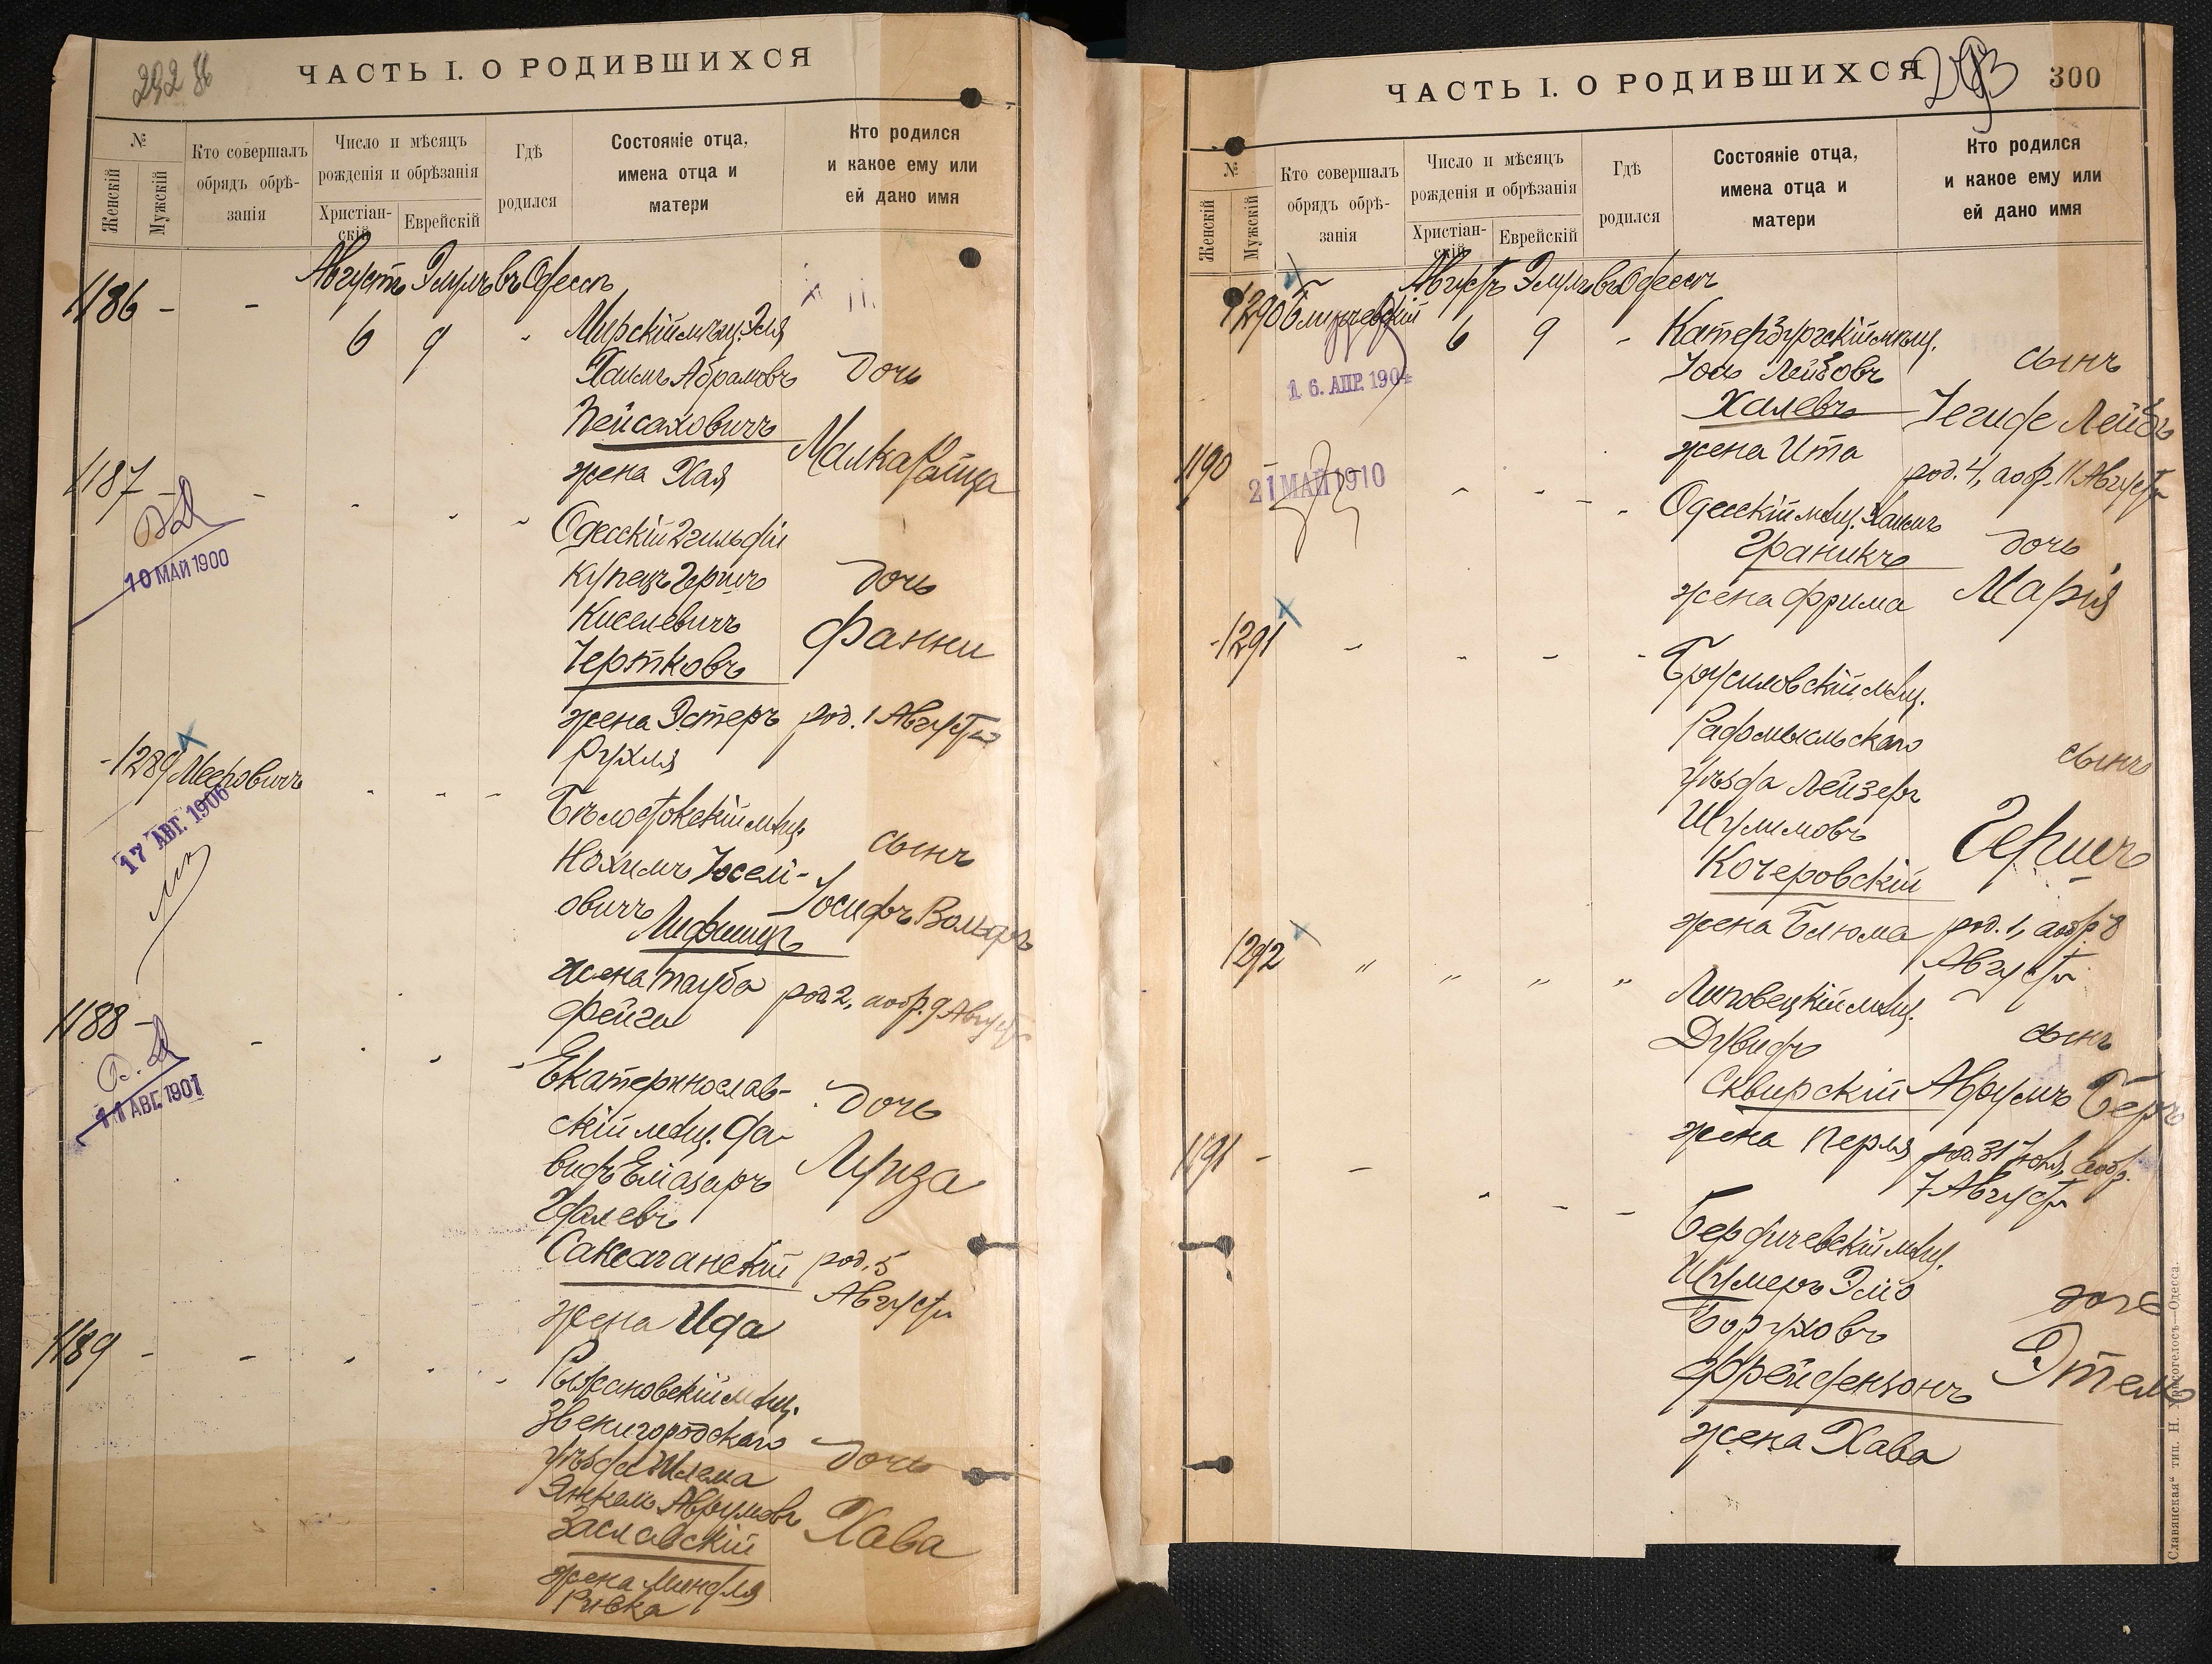 292
ЧАСТЬ I. О РОДИВШИХСЯ
№
Женскій
Мужскій
Кто совершалъ
обрядъ обрѣ-
занія
Число и мѣсяцъ
рожденія и обрѣзанія
Христіан-
скій
Еврейскій
Гдѣ
родился
Состояніе отца,
имена отца и
матери
Кто родился
и какое ему или
ей дано имя
Августъ Элулъ въ Одессѣ
1186 - -
6 9
Мирскій мѣщ. Эля
Хаимъ Абрамовъ дочь
Пейсаховичъ
Малка
жена Хая
1187 -
10 МАЙ 1900
Одесскій 2 гильдіи
купецъ Гершъ дочь
Киселевичъ
Фанни
Чертковъ
жена Эстеръ род. 1 Августа
Рухля
1289 Мееровичъ
17 АВГ. 1906
Бѣлостокскій мѣщ.
сынъ
Нохимъ Іосел-
овичъ Іосифъ Вольфъ
Лифшицъ
жена Тауба род. 2, а обр. 9 Августа
Фейга
1188 -
11 АВГ. 1901
Екатеринослав-
дочь
скій мѣщ. Да-
видъ Еліазаръ Луиза
Саксаганскій род. 5
Августа
жена Ида
1189 - -
Рыжановскій мѣщ.
Звенигородскаго
дочь
уѣзда Шлема
Янкель Аврумовъ
Хава
Заславскій
жена Миндля
Ривка
293
300
ЧАСТЬ I. О РОДИВШИХСЯ
№
Женскій
Мужскій
Кто совершалъ
обрядъ обрѣ-
занія
Число и мѣсяцъ
рожденія и обрѣзанія
Христіан-
скій
Еврейскій
Гдѣ
родился
Состояніе отца,
имена отца и
матери
Кто родился
и какое ему или
ей дано имя
Августъ Элулъ въ Одессѣ
1290
6 9
16. АПР. 1904
мѣщ.
сынъ
Лейбовъ
Халевъ Іегуде Лейбъ
жена Ита
род. 4, а обр. 11 Августа
1190
21 МАЙ 1910
Одесскій мѣщ. Хаимъ
Граникъ дочь
жена Фрима Марія
1291
Брусиловскій мѣщ.
Радомысльскаго
сынъ
уѣзда Лейзеръ
Шулимовъ
Гершъ
Кочеровскій
жена Блюма род. 1, а обр. 8
Августа
1292
Липовецкій мѣщ.
Дувидъ сынъ
Сквирскій Аврумъ Беръ
жена Перля род. 31 Іюля, а обр.
7 Августа
1191 - -
Бердичевскій мѣщ.
Шумеръ Эліо
дочь
Боруховъ
Фрейдензонъ Этель
жена Хава
„Славянская“ тип. Н. Хрисогелосъ—Одесса.